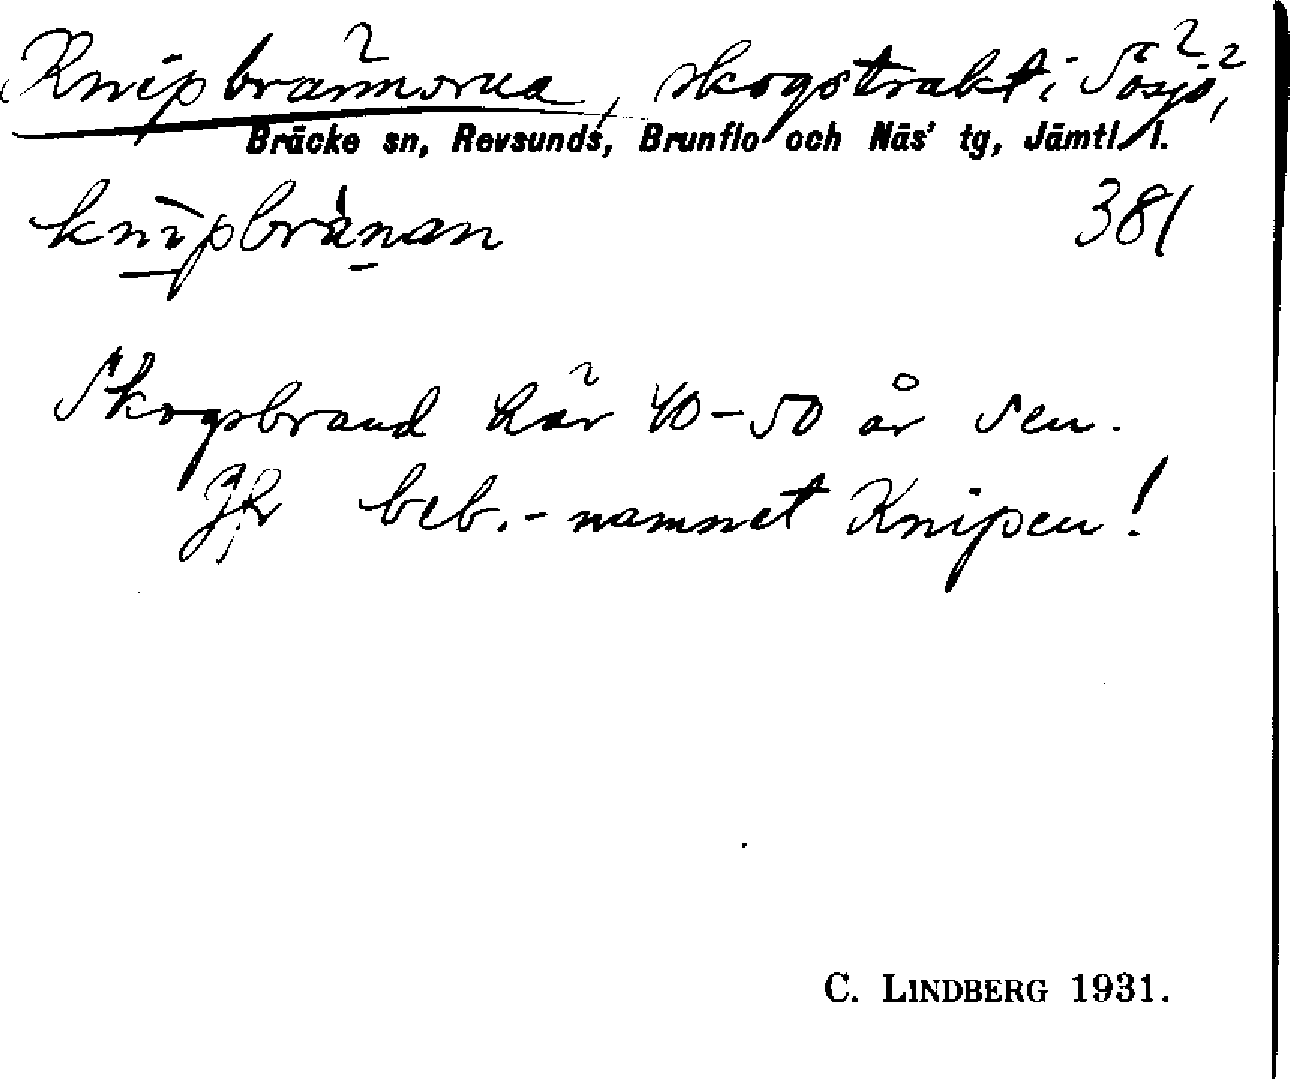 Knipbrännorna, skogstrakt i Sösjö,
Bräcke sn, Revsunds, Brunflo och Näs' tg, Jämtl. l.
knìpbrä̀nan 381
Skogsbrand här 40-50 år sen.
Jfr beb.-namnet Knipen!
C. LINDBERG 1931.